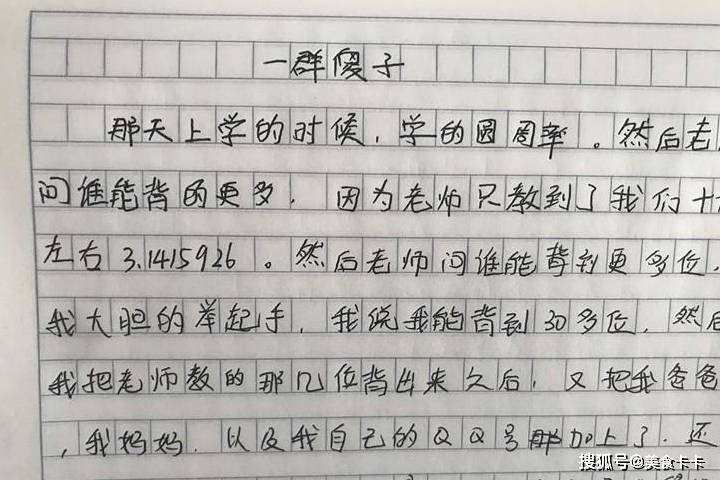 一群傻子
那天上学的时候，学的圆周率。然后老
问谁能背的更多，因为老师只教到了我们十
左右3.1415926。然后老师问谁能背到更多位，
我大胆的举起手，我说我能背到30多位，然后
我把老师教的那几位背出来之后，又把我爸爸
，我妈妈，以及我自己的QQ号都加上了，还
搜狐号@美食卡卡